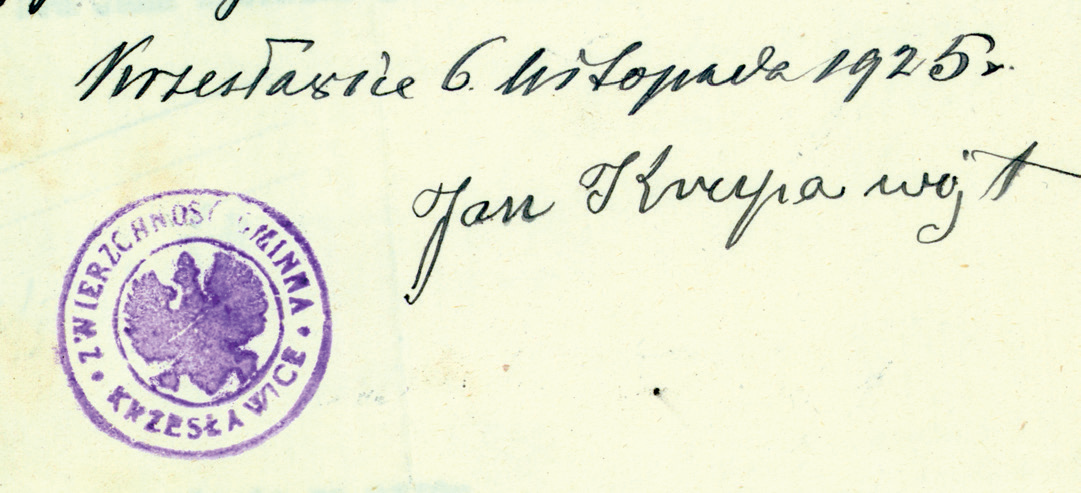 Krzesławice 6. listopada 1925r.
Jan Krupa wójt
ZWIERZCHNOŚĆ GMINNA
• KRZESŁAWICE •